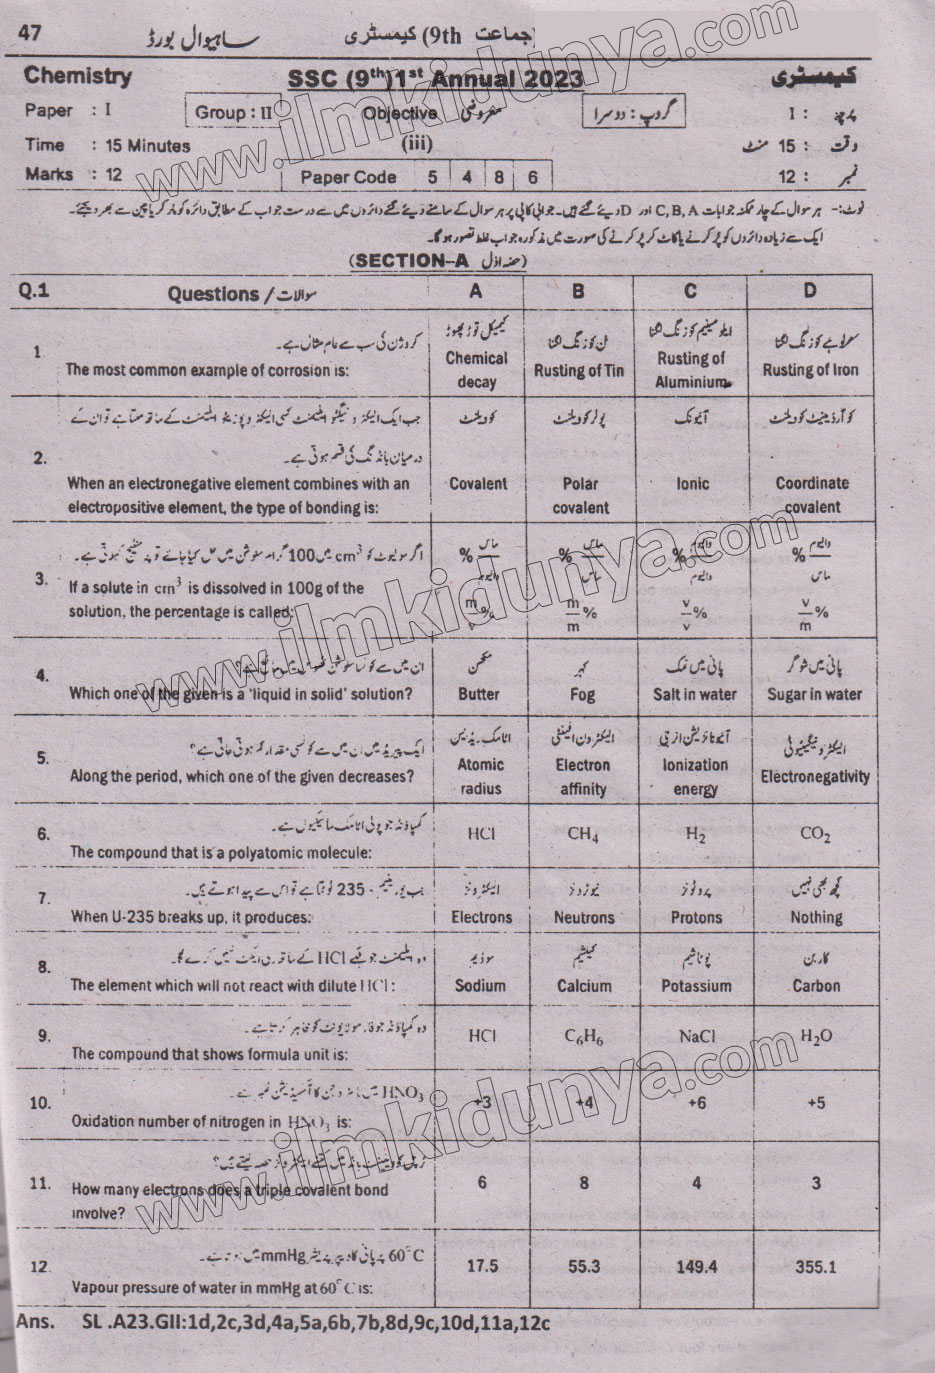 47 ساہیوال بورڈ (جماعت 9th) کیمسٹری
Chemistry SSC (9th)1st Annual 2023 کیمسٹری
Paper : I Group : II Objective معروضی گروپ : دوسرا I : پرچہ
Time : 15 Minutes (iii) وقت : 15 منٹ
Marks : 12 Paper Code 5 4 8 6 نمبر : 12
نوٹ:- ہر سوال کے چار ممکنہ جوابات C, B, A اور D دیئے گئے ہیں۔ جوابی کاپی پر ہر سوال کے سامنے دیئے گئے دائروں میں سے درست جواب کے مطابق دائرہ کو مارکر یا پین سے بھر دیجئے۔
ایک سے زیادہ دائروں کو پُر کرنے یا کاٹ کر پُر کرنے کی صورت میں مذکورہ جواب غلط تصور ہوگا۔
(SECTION-A حصہ اوّل)
Q.1 Questions / سوالات A B C D
کروژن کی سب سے عام مثال ہے۔ کیمیکل توڑ پھوڑ ٹن کو زنگ لگنا ایلومینیم کو زنگ لگنا لوہے کو زنگ لگنا
1 The most common example of corrosion is: Chemical decay Rusting of Tin Rusting of Aluminium Rusting of Iron
جب ایک الیکٹرونیگٹو ایلیمنٹ کسی الیکٹروپوزیٹو ایلیمنٹ کے ساتھ ملتا ہے تو ان کے کوویلنٹ پولر کوویلنٹ آئیونک کوآرڈینیٹ کوویلنٹ
درمیان بانڈنگ کی قسم ہوتی ہے۔
2. When an electronegative element combines with an Covalent Polar Ionic Coordinate
electropositive element, the type of bonding is: covalent covalent
اگر سولیوٹ کو cm³ میں 100 گرام سلوشن میں حل کیا جائے تو یہ کہلاتی ہے۔ % ماس/والیوم % ماس/ماس % والیوم/والیوم % والیوم/ماس
3. If a solute in cm³ is dissolved in 100g of the m/v % m/m % v/v % v/m %
solution, the percentage is called:
ان میں سے کون سا سلوشن ٹھوس میں مائع ہے؟ مکھن کہر پانی میں نمک پانی میں شوگر
4. Which one of the given is a 'liquid in solid' solution? Butter Fog Salt in water Sugar in water
ایک پیریڈ میں ان میں سے کونسی مقدار کم ہوتی جاتی ہے؟ اٹامک ریڈیس الیکٹرون افینٹی آئیونائزیشن انرجی الیکٹرونیگیٹیوٹی
5. Along the period, which one of the given decreases? Atomic radius Electron affinity Ionization energy Electronegativity
کمپاؤنڈ جو پولی اٹامک مالیکیول ہے۔
6. The compound that is a polyatomic molecule: HCl CH₄ H₂ CO₂
جب یورینیم - 235 ٹوٹتا ہے تو اس سے پیدا ہوتے ہیں۔ الیکٹرونز نیوٹرونز پروٹونز کچھ بھی نہیں
7. When U-235 breaks up, it produces: Electrons Neutrons Protons Nothing
وہ ایلیمنٹ جو ہلکے HCl کے ساتھ ری ایکٹ نہیں کرے گا۔ سوڈیم کیلشیم پوٹاشیم کاربن
8. The element which will not react with dilute HCl: Sodium Calcium Potassium Carbon
وہ کمپاؤنڈ جو فارمولا یونٹ کو ظاہر کرتا ہے۔
9. The compound that shows formula unit is: HCl C₆H₆ NaCl H₂O
HNO₃ میں نائٹروجن کا آکسیڈیشن نمبر ہے۔
10. Oxidation number of nitrogen in HNO₃ is: +3 +4 +6 +5
ٹرپل کوویلنٹ بانڈ میں کتنے الیکٹرونز حصہ لیتے ہیں؟
11. How many electrons does a triple covalent bond 6 8 4 3
involve?
60°C پر پانی کا ویپر پریشر mmHg میں ہوتا ہے۔
12. Vapour pressure of water in mmHg at 60°C is: 17.5 55.3 149.4 355.1
Ans. SL .A23.GII:1d,2c,3d,4a,5a,6b,7b,8d,9c,10d,11a,12c
www.ilmkidunya.com
www.ilmkidunya.com
www.ilmkidunya.com